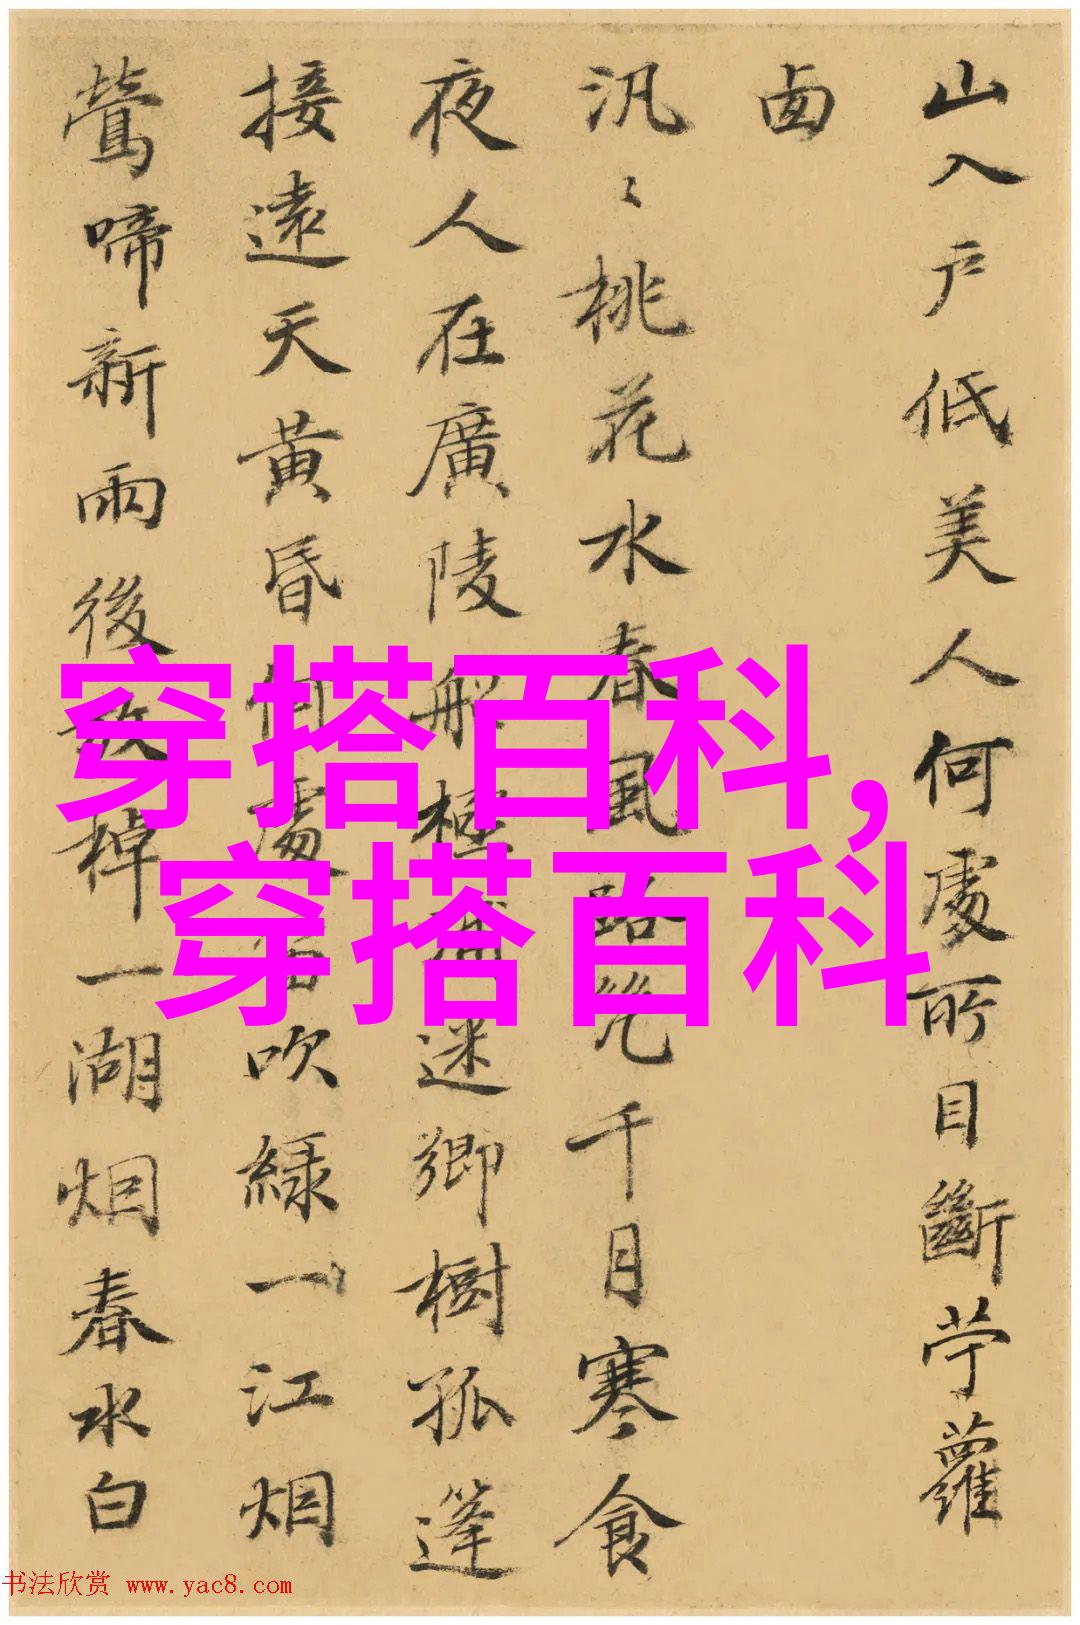 山入戶低美人何處所目斷苧蘿
卥
汎〻桃花水春風路幾千月寒食
夜人在廣陵船極浦迷鄉樹孤篷
接遠天黃昏何處笛吹綠一江烟
鶯啼新雨後放棹一湖烟春水白
穿搭百科,
穿搭百科
书法欣赏 www.yac8.com